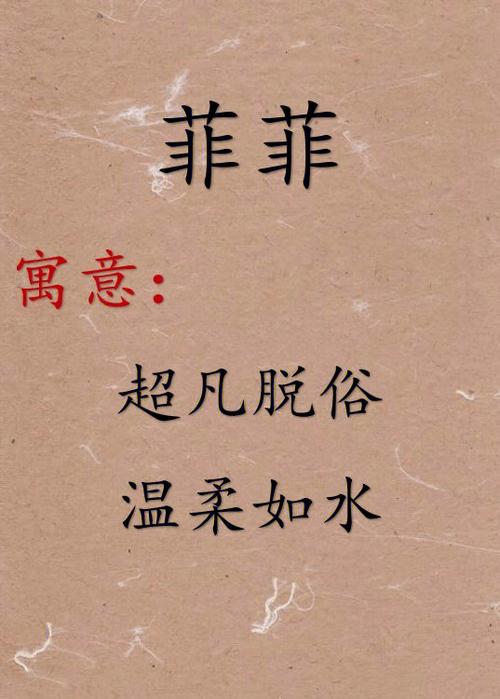 菲菲
寓意：
超凡脱俗
温柔如水